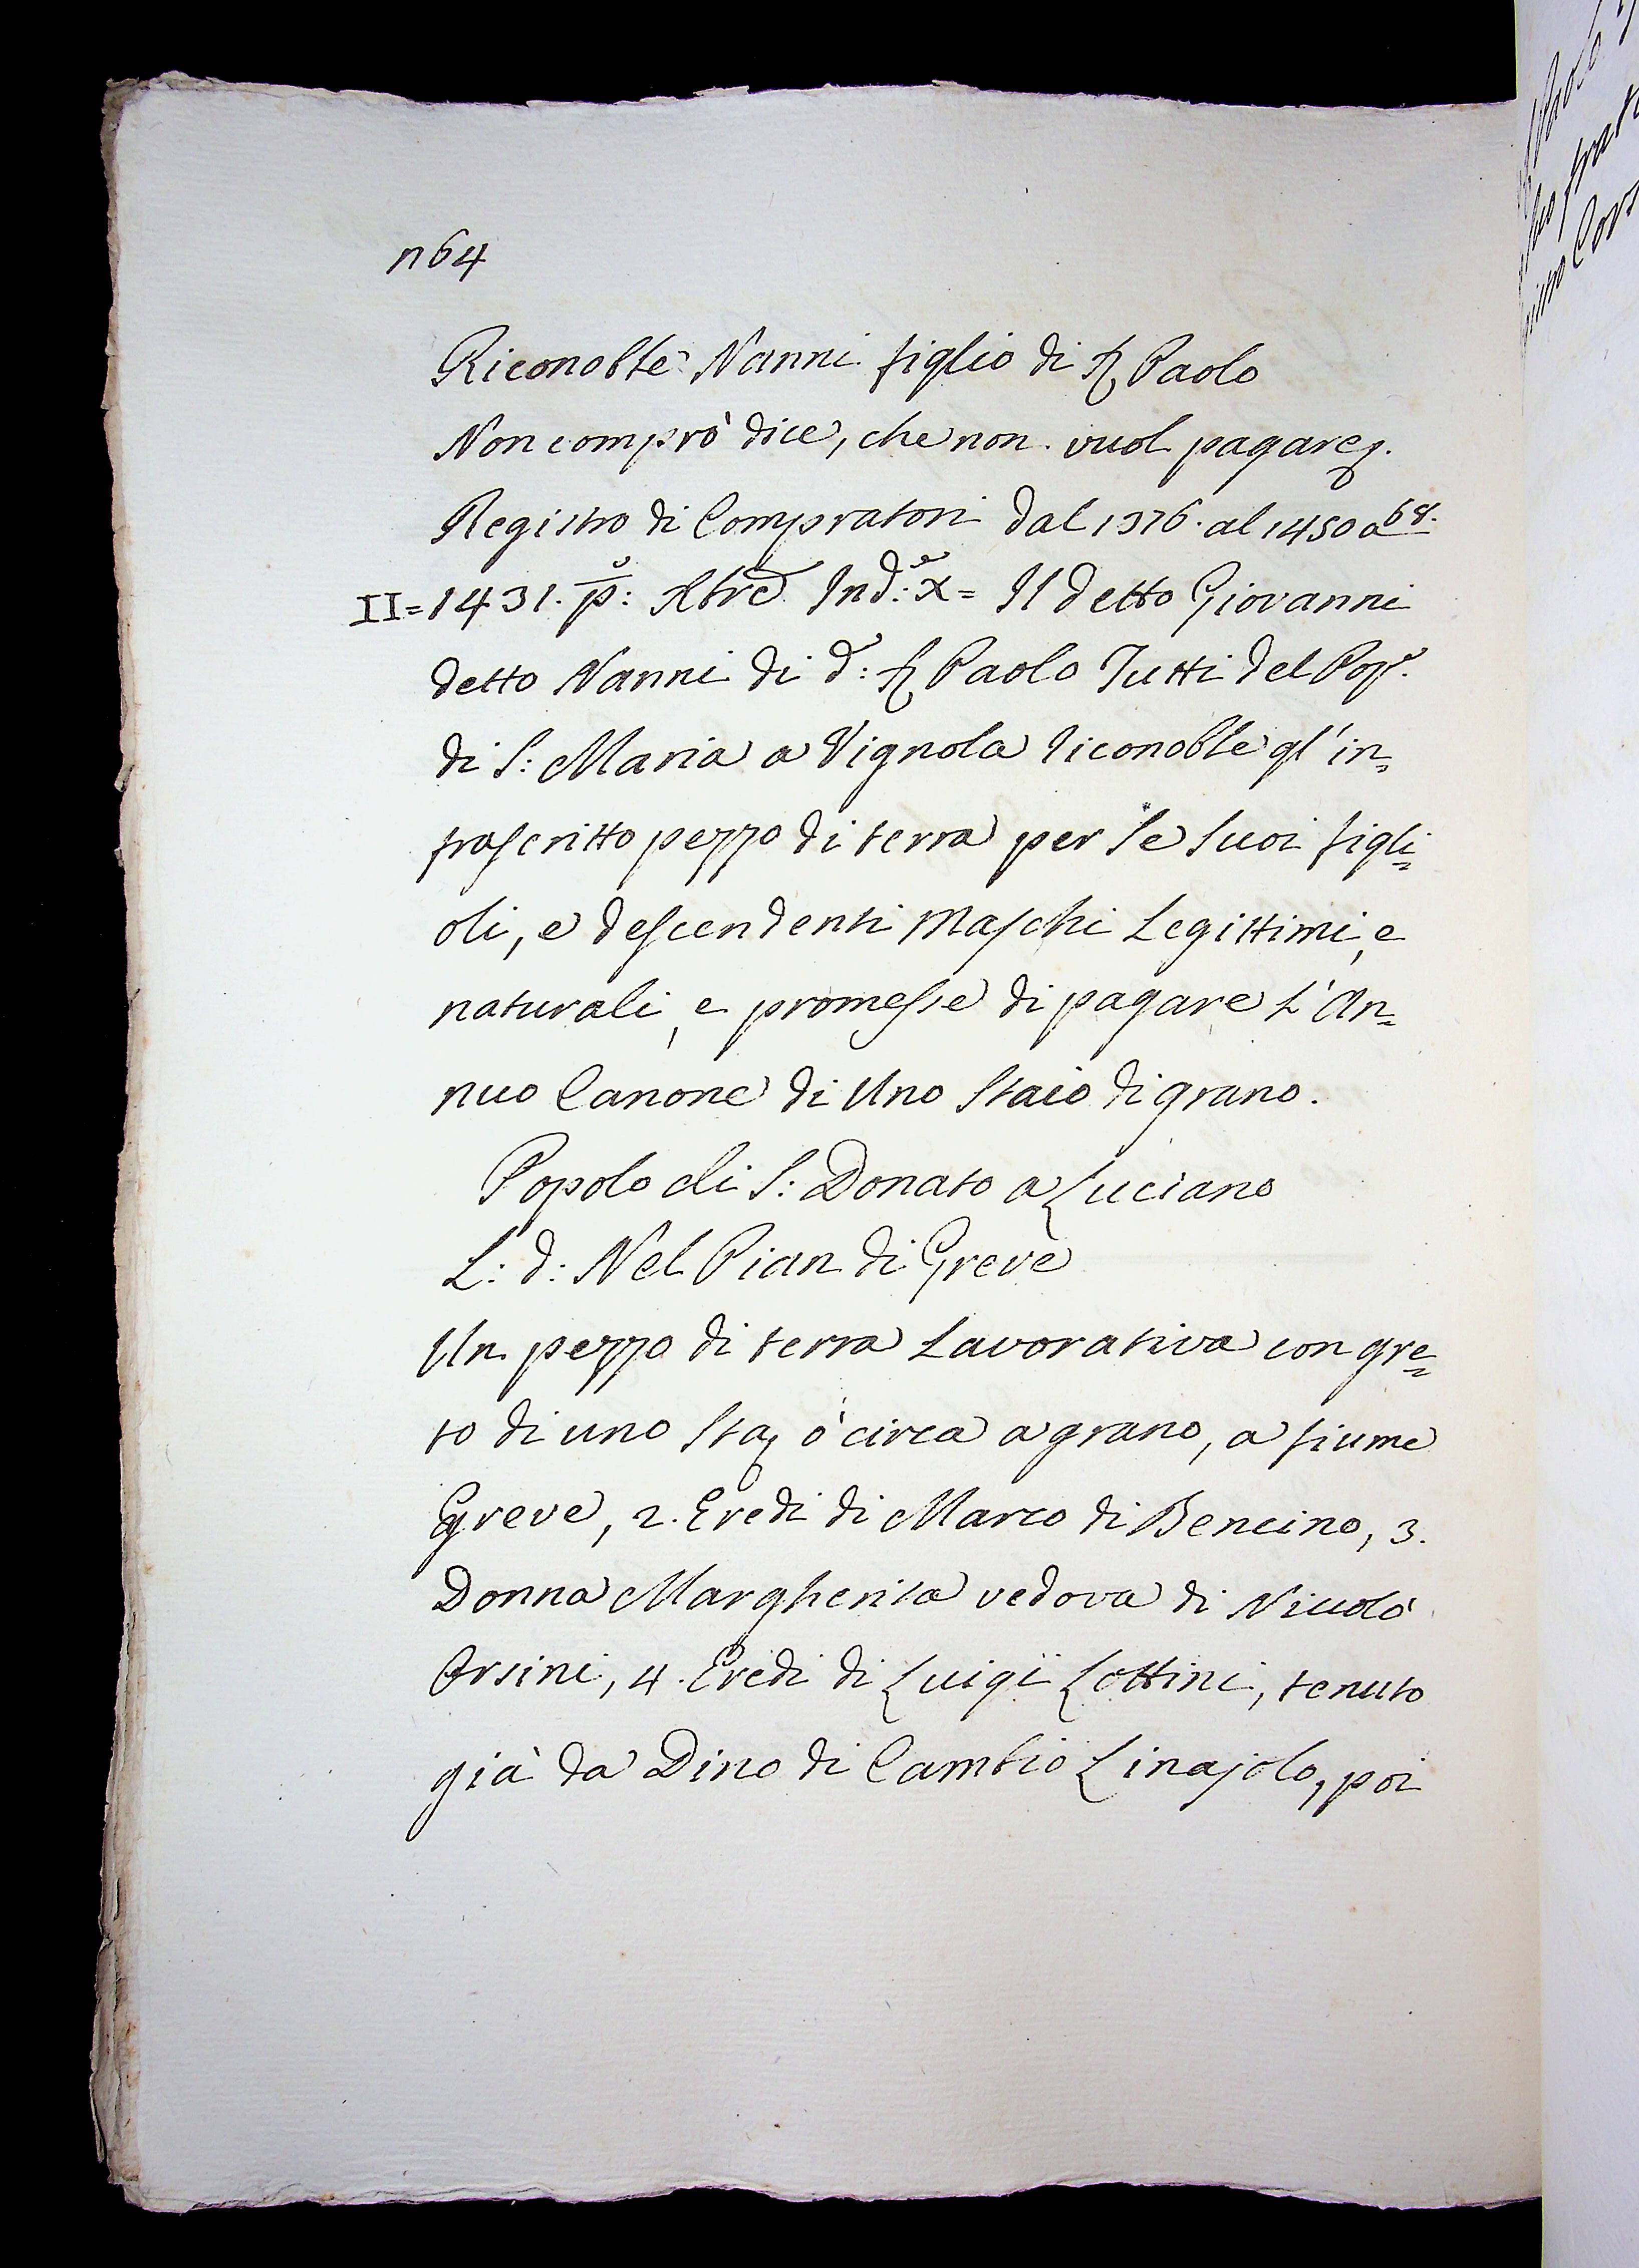 n64
Riconobbe Nanni figlio di Paolo
Non comprò dice, che non vuol pagare.
Registro di Compratori dal 1376. al 1450 a 68.
II = 1431. p.º: Xbre Ind.e: X = Il detto Giovanni
detto Nanni di d.º: Paolo Tutti del Pop.º
di S: Maria a Vignola riconobbe gl'in=
frascritto pezzo di terra per se suoi figli=
oli, e descendenti Maschi Legittimi, e
naturali, e promesse di pagare L'An=
nuo Canone di Uno Staio di grano.
Popolo di S: Donato a Luciano
L: d: Nel Pian di Greve
Un pezzo di terra Lavorativa con gre=
to di uno Sta ò circa a grano, a fiume
Greve, 2. Eredi di Marco di Bencino, 3.
Donna Margherita vedova di Niccolò
Orsini, 4. Eredi di Luigi Lottini, tenuto
già da Dino di Cambio Linajolo, poi